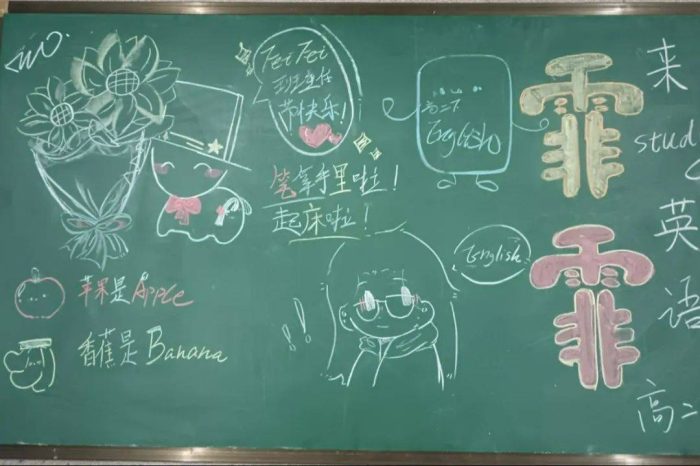 Fei Fei
班主任
节快乐!
笔拿手里啦!
起床啦!
苹果是Apple
香蕉是Banana
高二下
English
English
!!
霏
霏
来
stud
英
语
高二